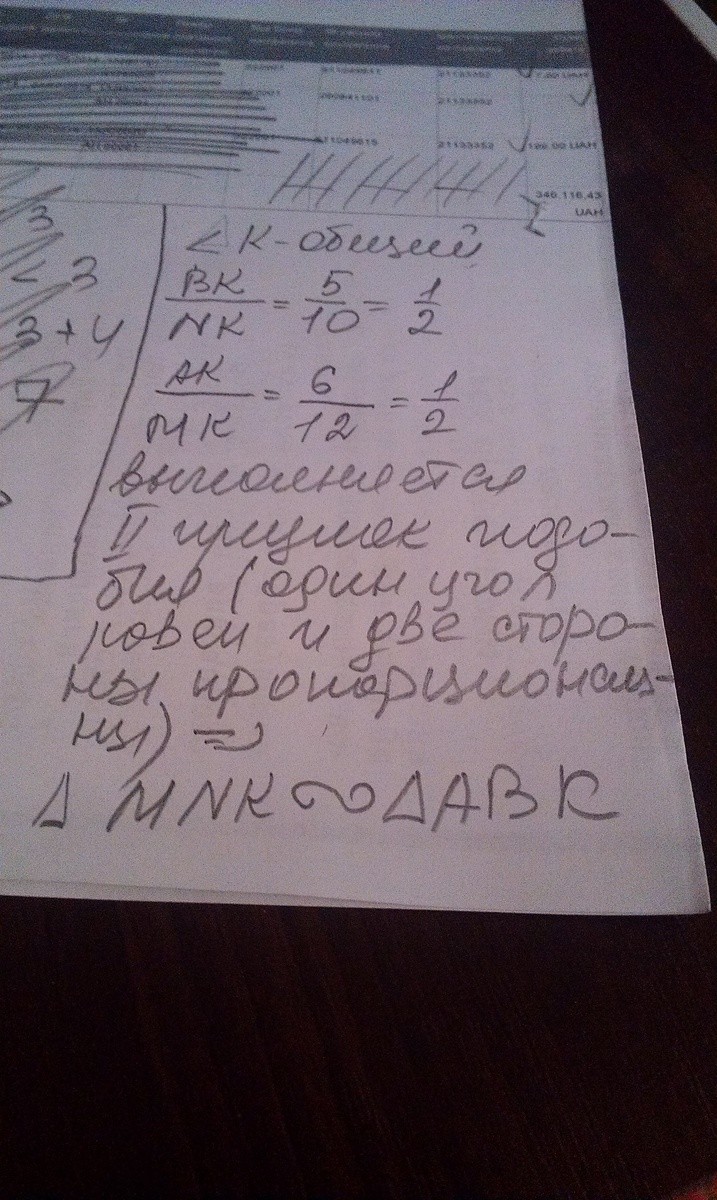 21133352
7.00 UAH
21133352
21133352
100.00 UAH
340.116,43
UAH
3
< 3
3 + 4
7
∠ К - общий
BK/NK = 5/10 = 1/2
AK/MK = 6/12 = 1/2
выполняется
II признак подо-
бия (один угол
равен и две сторо-
ны пропорциональ-
ны) =>
Δ MNK ∾ Δ ABK